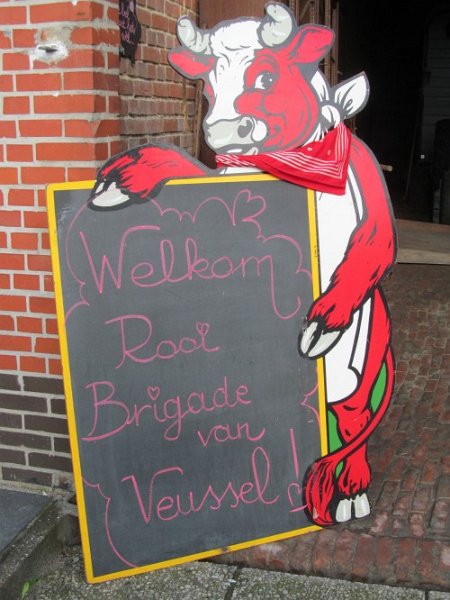 Welkom
Rooi
Brigade
van
Veussel!